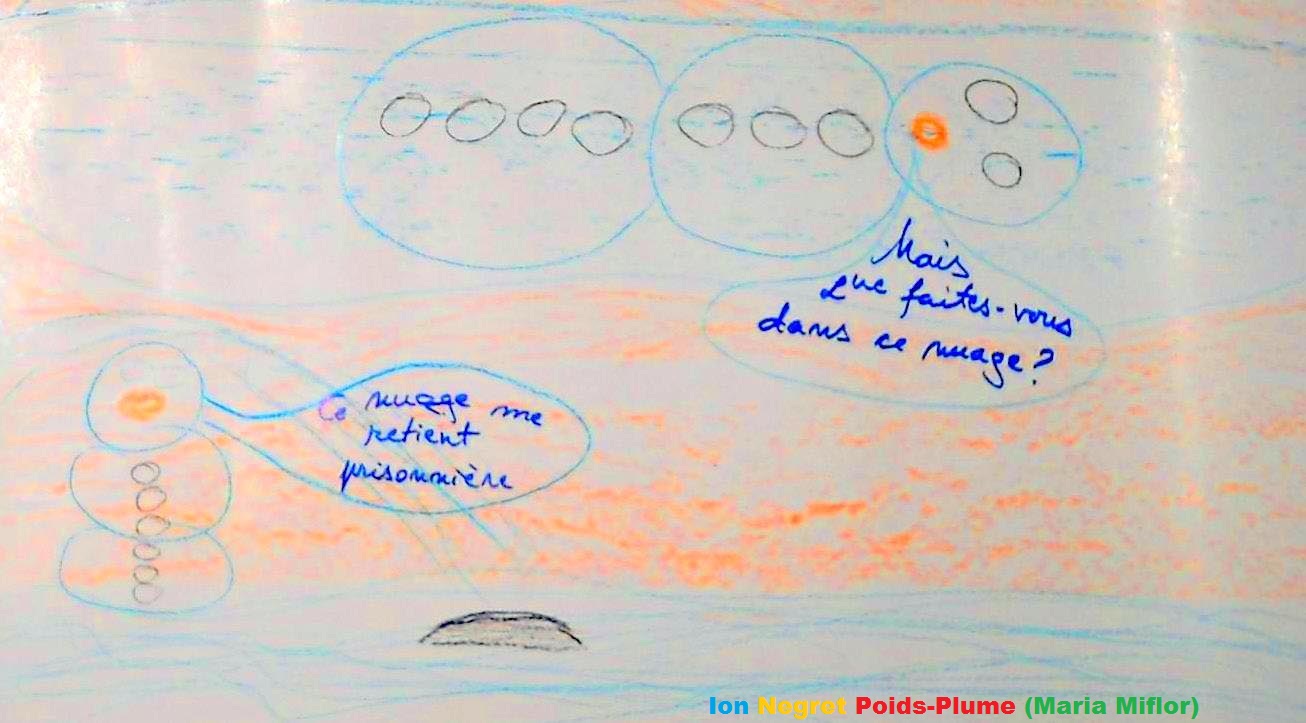 Mais
que faites-vous
dans ce nuage?
Ce nuage me
retient
prisonnière
Ion Negret Poids-Plume (Maria Miflor)